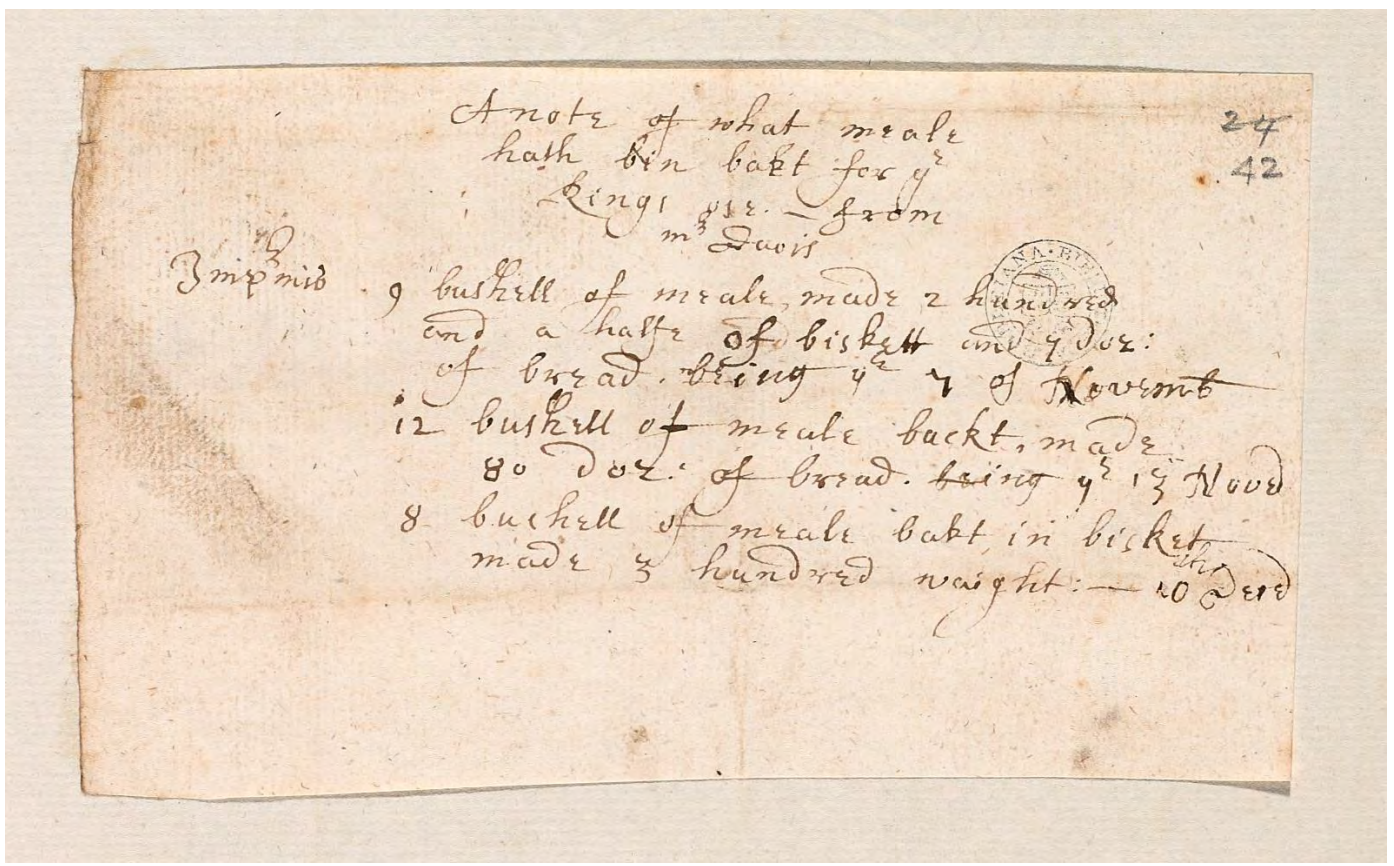 A note of what meale
hath bin bakt for ye
Kings use. — from
mr Davis
24
42
Impr mis 9 bushell of meale made 2 hundred
and a halfe of biskett and 7 doz:
of bread. being ye 7 of Novemb
12 bushell of meale backt. made
80 doz: of bread. being ye 13 Nove
8 bushell of meale bakt in bisket
made 3 hundred waight: — 10th Dece